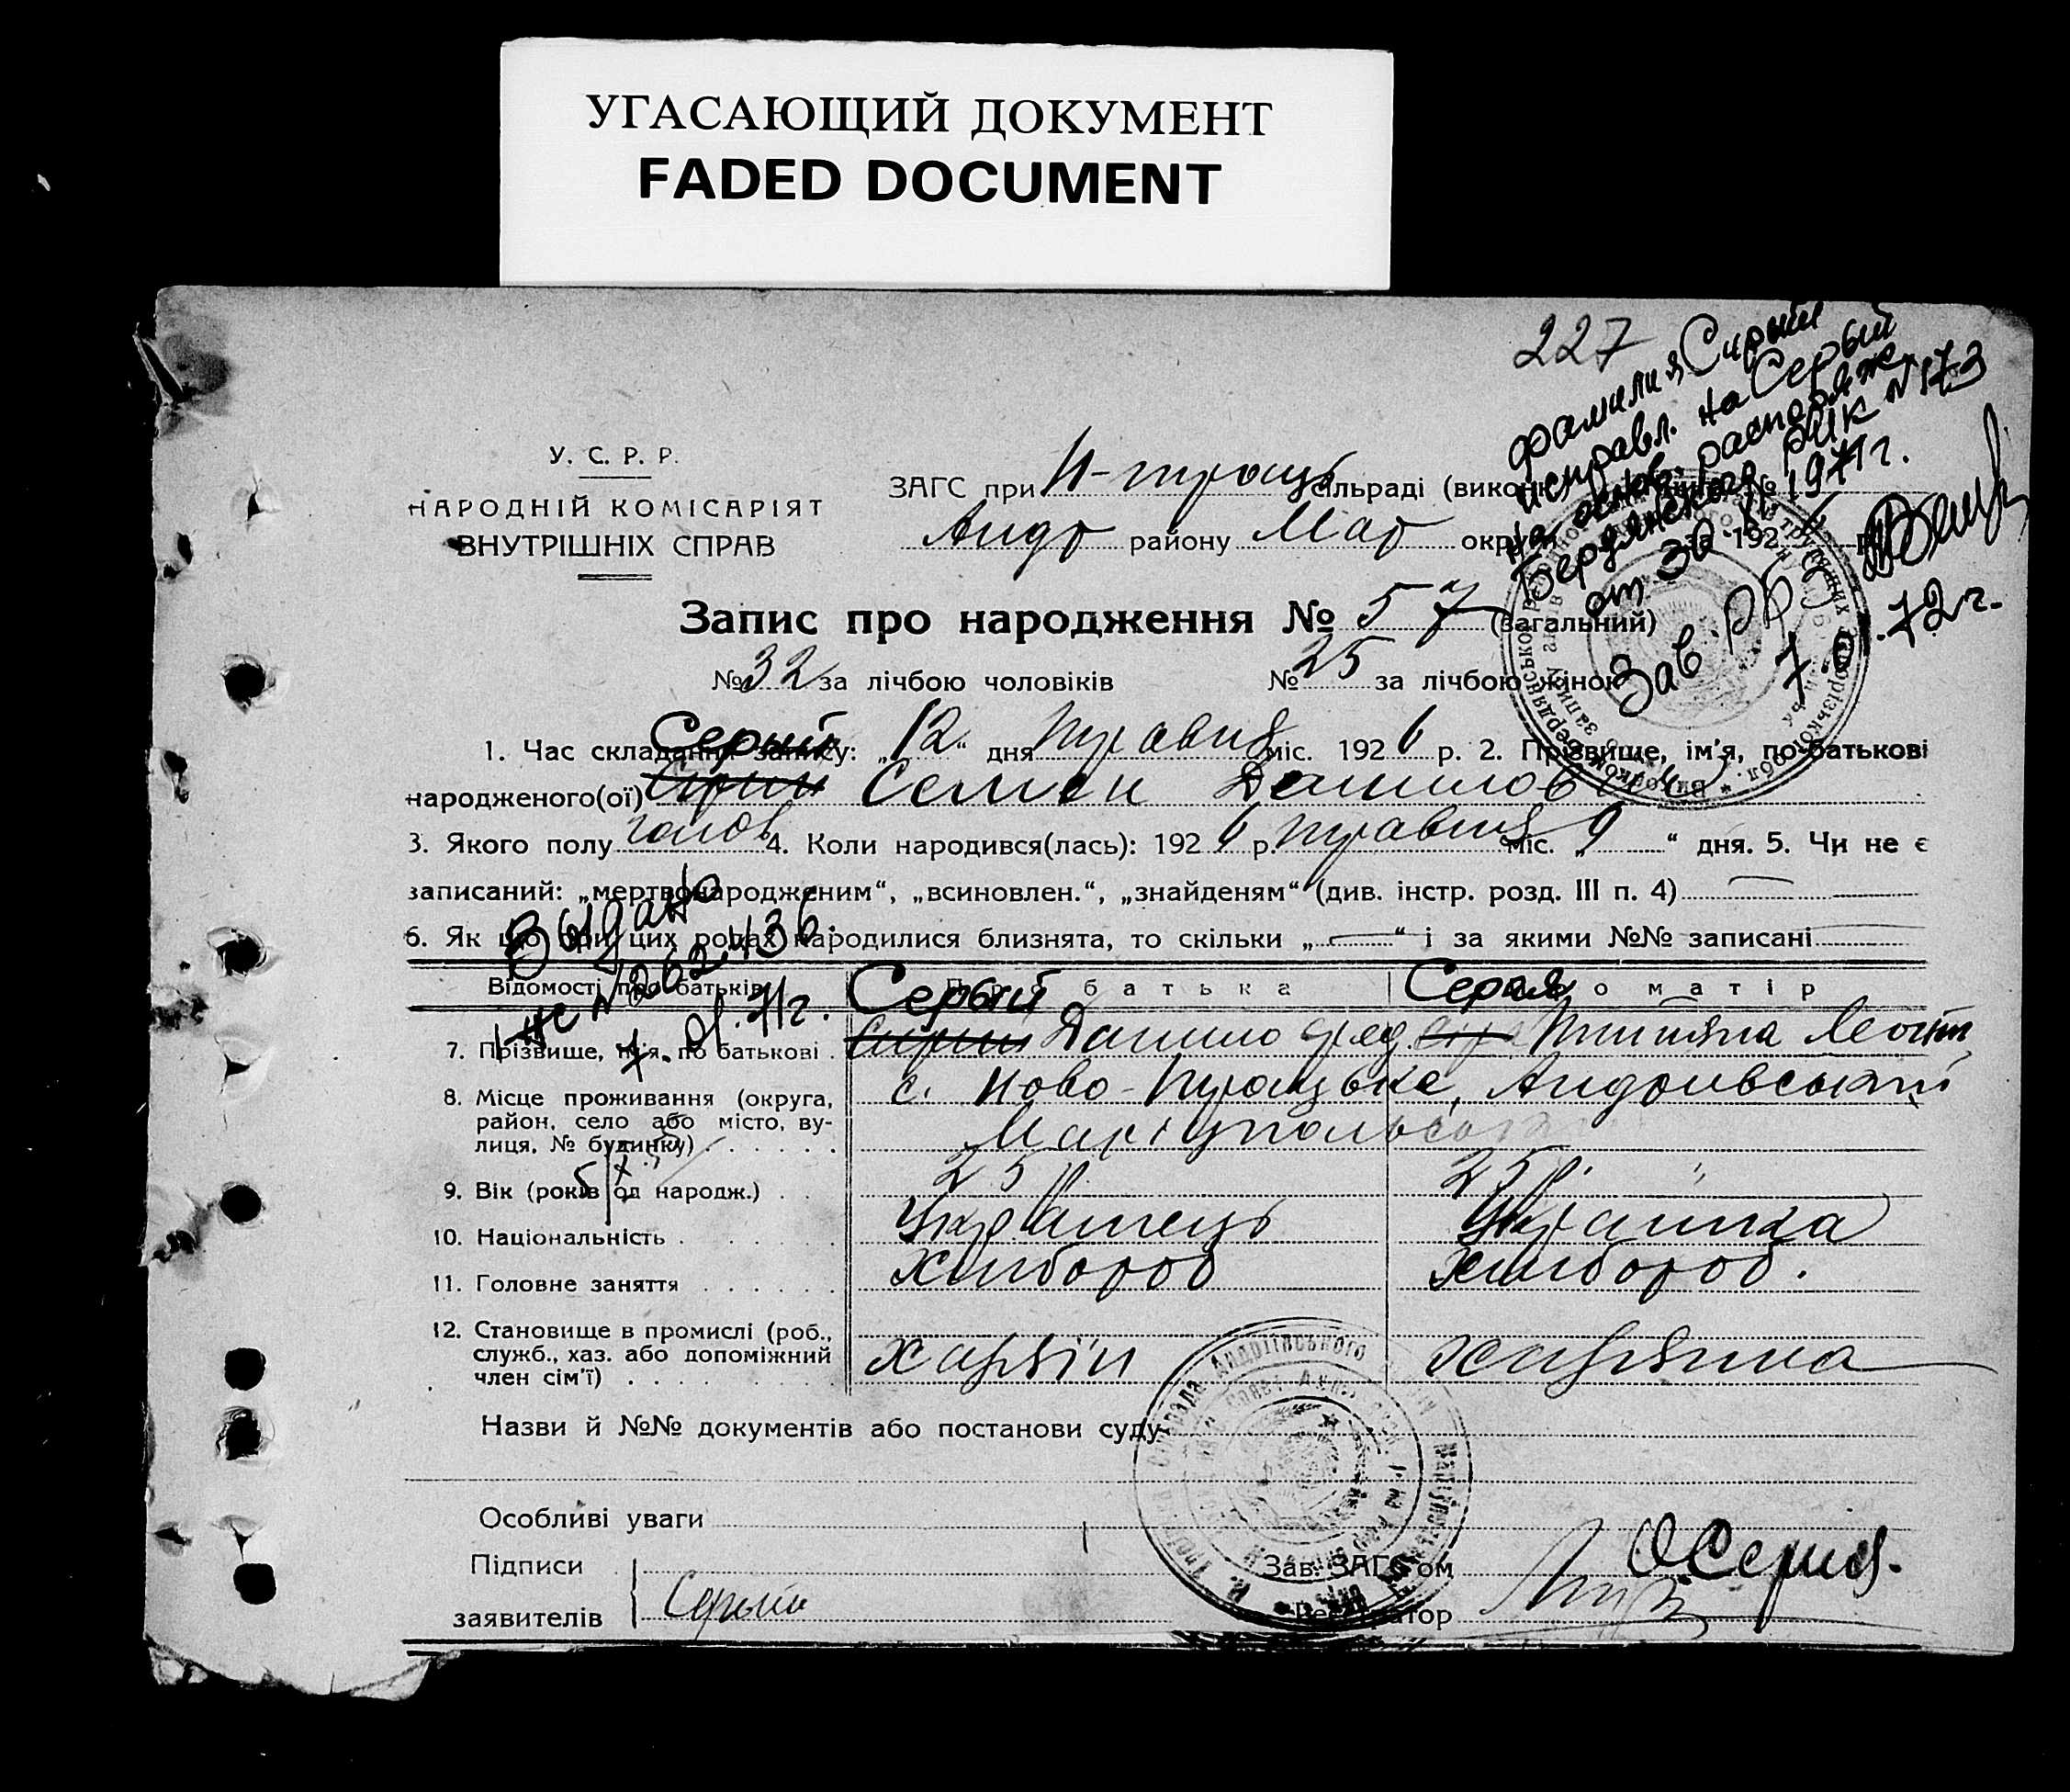 УГАСАЮЩИЙ ДОКУМЕНТ
FADED DOCUMENT
227
фамилия Сирый
исправл. на Серый
на основ. распоряж.
Бердянского РИК №173
от 30 XII 1971 г.
Зав. РБЗ
7.01.72 г.
У. С. Р. Р.
НАРОДНІЙ КОМІСАРІЯТ
ВНУТРІШНІХ СПРАВ
ЗАГС при Н-троць сільраді (викон
Андр району Мар округи 1926 р.
Запис про народження № 57 (загальний)
№ 32 за лічбою чоловіків № 25 за лічбою жінок
Серый
1. Час складання запису: „12“ дня травня міс. 1926 р. 2. Прізвище, ім'я, по-батькові
народженого(ої) Сірий Семен Данилов
3. Якого полу чолов 4. Коли народився(лась): 1926 р. травня міс. „9“ дня. 5. Чи не є
записаний: „мертвонародженим“, „всиновлен.“, „знайденям“ (див. інстр. розд. III п. 4)
6. Як що при цих родах народилися близнята, то скільки „—“ і за якими №№ записані
Выдано
№262436.
7.01.71г.
Відомості про батьків Про батька Про матір
Серый Серая
7. Прізвище, ім'я, по батькові Сирий Данило Фед. Титяна Леонт
8. Місце проживання (округа, с. Ново-Троцьке, Андріївський
район, село або місто, ву- Маріупольська
лиця, № будинку)
9. Вік (років од народж.) 25 р. 25 р.
10. Національність Українець Українка
11. Головне заняття хлібороб хлібороб.
12. Становище в промислі (роб.,
служб., хаз. або допоміжний хазяїн хазяйка
член сім'ї)
Назви й №№ документів або постанови суду
Особливі уваги
Підписи Зав. ЗАГС'ом
заявителів Серый Реєстратор